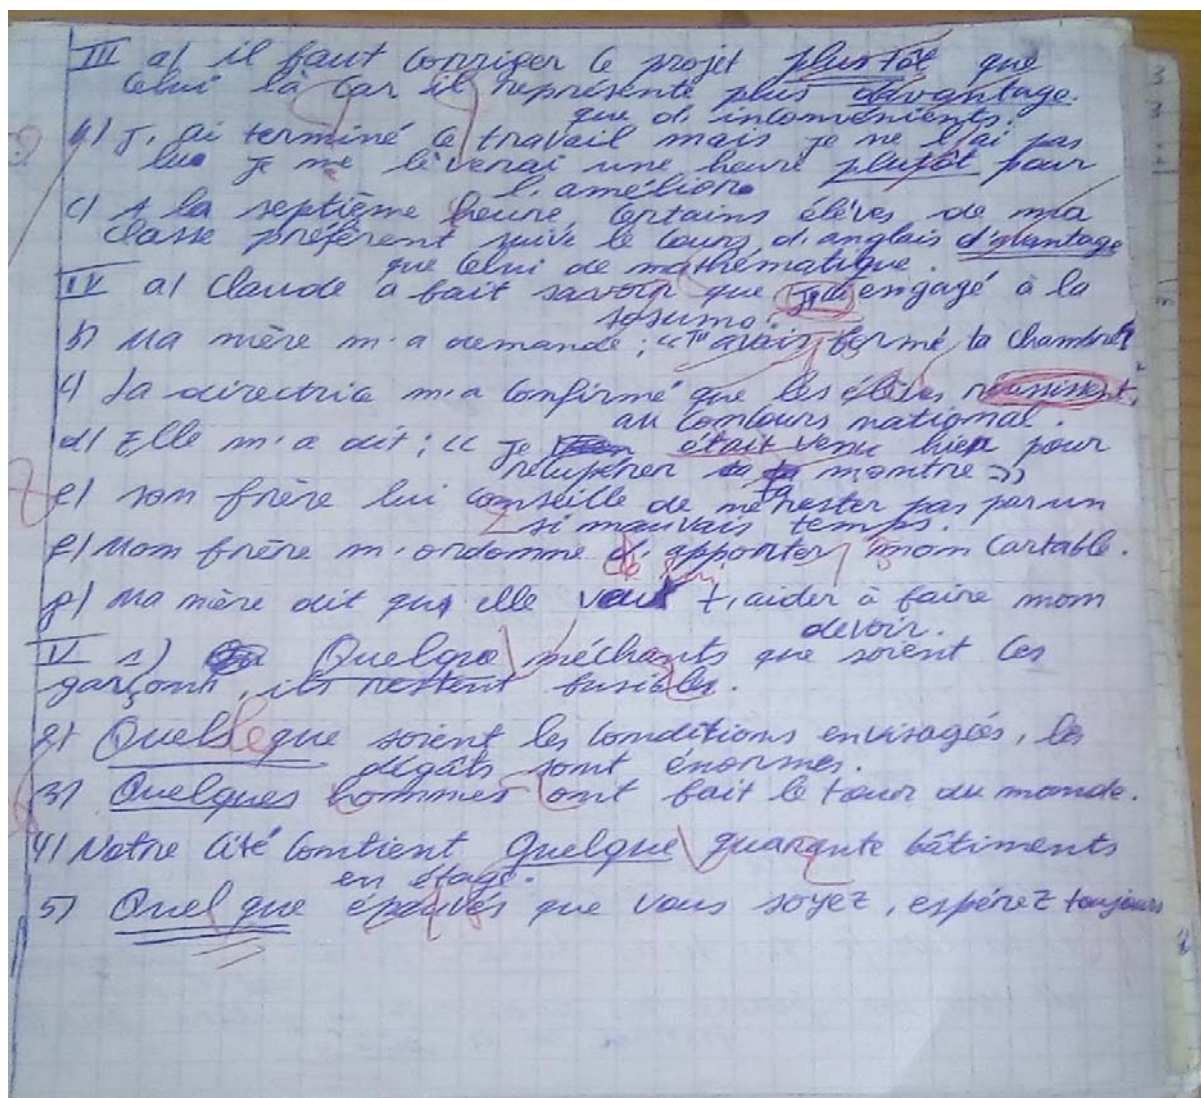 III a) il faut corriger ce projet plus tôt que
celui là car il représente plus davantage.
que d'inconvénients.
b) J'ai terminé ce travail mais je ne l'ai pas
lu je me lèverai une heure plutôt pour
l'améliore
c) A la septième heure, certains élèves de ma
classe préfèrent suivre le cours d'anglais d'avantage
que celui de mathématique.
IV a) Claude a fait savoir que engagé à la
sosumo.
b) Ma mère m'a demande : "Tu avais fermé la chambre
c) La directrice m'a confirmé que les élèves réussissent
au concours national.
d) Elle m'a dit : « Je était venu hier pour
récupérer ta montre »
e) son frère lui conseille de ne rester pas par un
si mauvais temps.
f) Mon frère m'ordonne d'apporter mon cartable.
g) Ma mère dit qu'elle veut t'aider à faire mon
devoir.
V 1) Quelque méchants que soient ces
garçons, ils restent
2) Quels que soient les conditions envisagées, les
dégâts sont énormes.
3) Quelques hommes ont fait le tour du monde.
4) Notre cité contient Quelque quarante bâtiments
en étage.
5) Quel que que vous soyez, espérez toujours